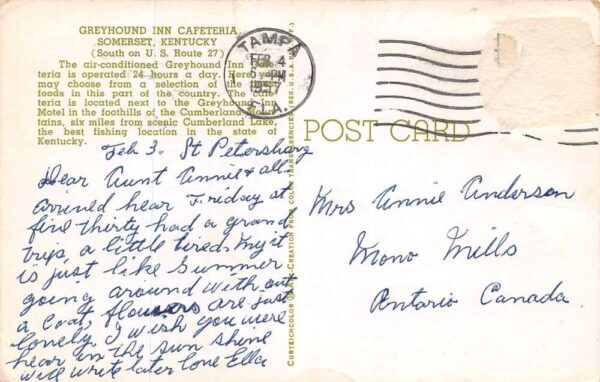 GREYHOUND INN CAFETERIA
SOMERSET, KENTUCKY
(South on U. S. Route 27)
The air-conditioned Greyhound Inn Cafe-
teria is operated 24 hours a day. Here you
may choose from a selection of the
foods in this part of the country. The cafe-
teria is located next to the Greyhound Inn
Motel in the foothills of the Cumberland Moun-
tains, six miles from scenic Cumberland Lake,
the best fishing location in the state of
Kentucky.
TAMPA
FEB 4
PM
1957
FLA.
POST CARD
CURTEICHCOLOR ® ART-CREATION FROM COLOR TRANSPARENCIES (REG. U.S.A.
Feb 3. St Petersburg
Dear Aunt Annie & all
arrived hear Friday at
five thirty had a grand
trip, a little tired. My it
is just like Summer
going around with out
a coat, flowers are just
lonely, I wish you were
hear in the sun shine
will write later love Ella
Mrs Annie Anderson
Mono Mills
Ontario Canada.